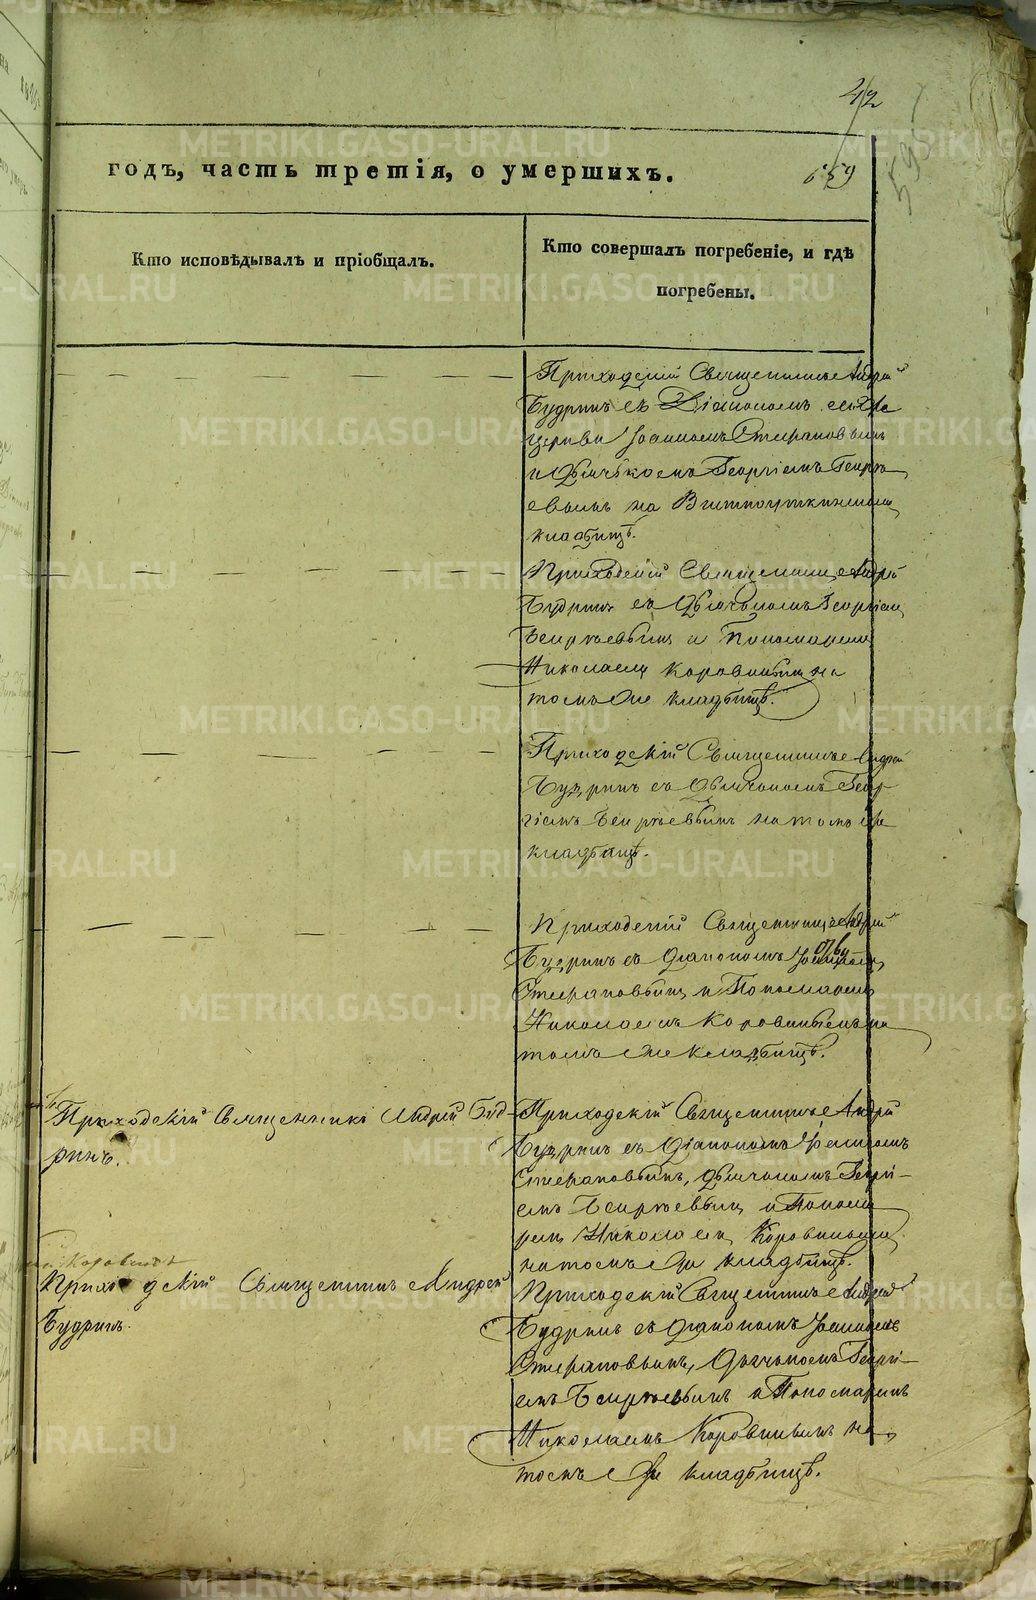 42
годъ, часть третія, о умершихъ.
659
Кто исповѣдывалъ и пріобщалъ.
Кто совершалъ погребеніе, и гдѣ
погребены.
Приходскій Священникъ Андрей
Будринъ съ Діакономъ
церкви Іоанномъ Стефановымъ
и Дьячкомъ Георгіемъ
на
кладбищѣ.
Приходскій Священникъ Андрей
Будринъ съ Дьячкомъ Георгіемъ
и Пономаремъ
Николаемъ Коровинымъ на
томъ же кладбищѣ.
Приходскій Священникъ Андрей
Будринъ съ Дьячкомъ Геор-
гіемъ на томъ же
кладбищѣ.
Приходскій Священникъ Андрей
Будринъ съ Діакономъ
Стефановымъ и Пономаремъ
Николаемъ Коровинымъ на
томъ же кладбищѣ.
Приходскій Священникъ Андрей Буд-
ринъ.
Приходскій Священникъ Андрей
Будринъ съ Діакономъ
Стефановымъ, Дьячкомъ Георгі-
емъ и Понома-
ремъ Николаемъ Коровинымъ
на томъ же кладбищѣ.
Приходскій Священникъ Андрей
Будринъ.
Приходскій Священникъ Андрей
Будринъ съ Діакономъ Іоанномъ
Стефановымъ, Дьячкомъ Георгі-
емъ и Пономаремъ
Николаемъ Коровинымъ на
томъ же кладбищѣ.
METRIKI.GASO-URAL.RU